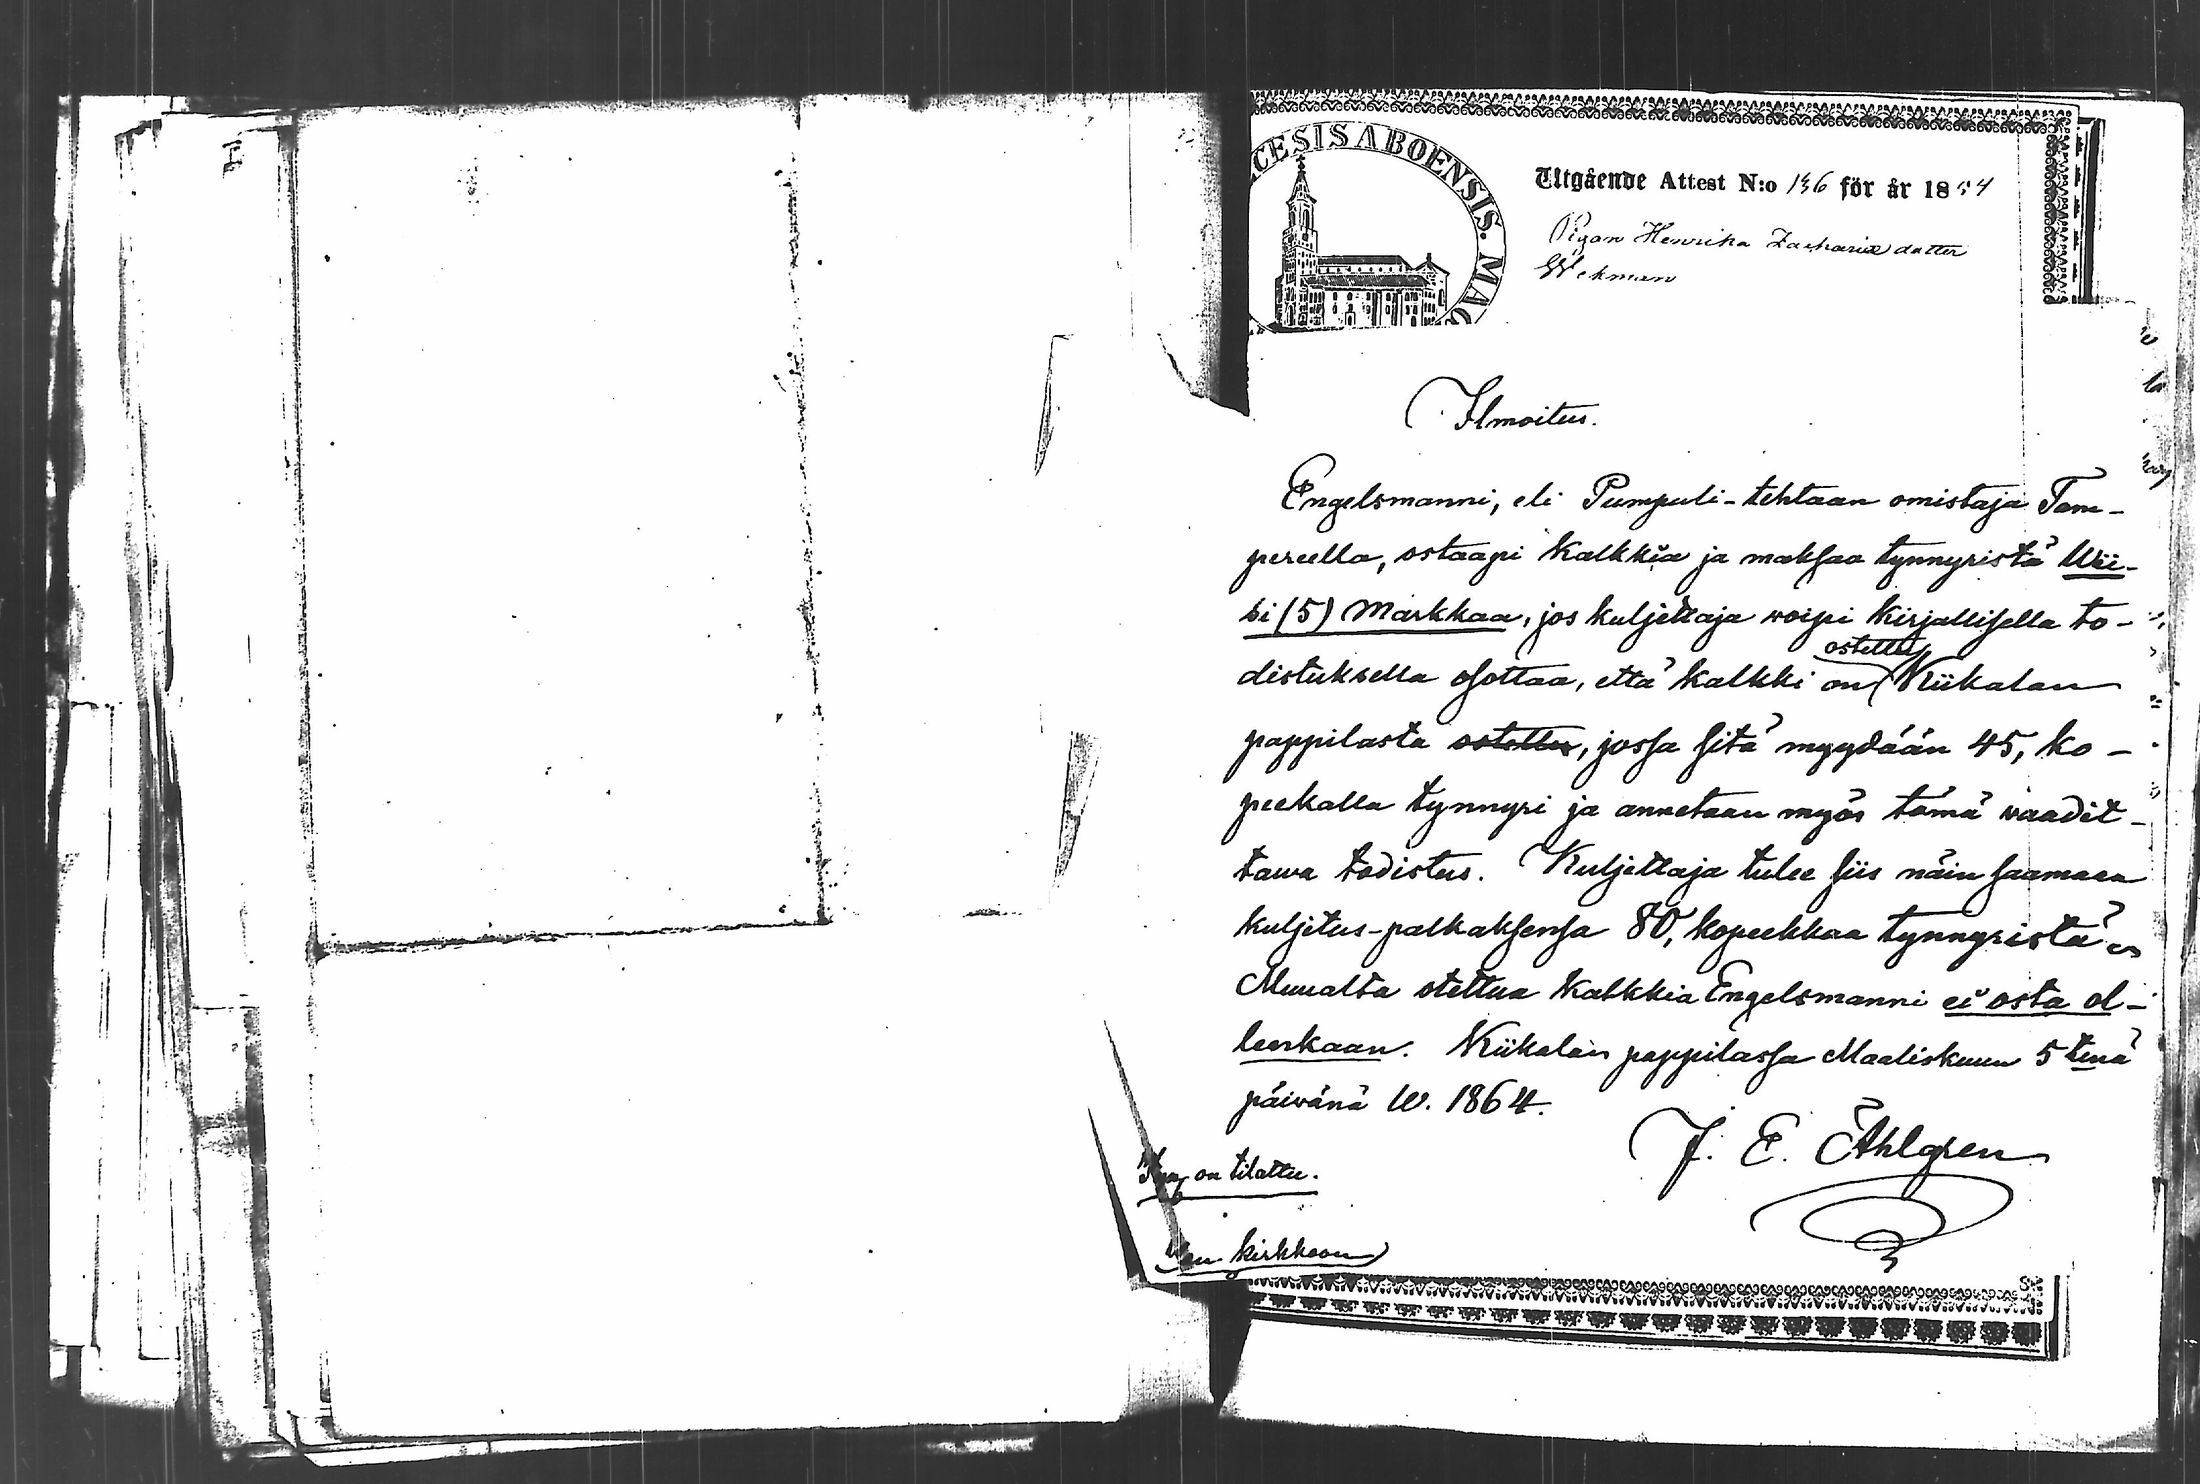 CESIS ABOENSIS. MAG
Utgående Attest N:o 136 för år 1854
Pigan Henrika Zachariædotter
Wekman
Ilmoitus.
Engelsmanni, eli Pumpuli-tehtaan omistaja Tam-
pereella, ostaapi kalkkia ja maksaa tynnyristä Wii-
si (5) Markkaa, jos kuljettaja woipi kirjallisella to-
distuksella osottaa, että kalkki on ostettu Kiikalan
pappilasta ostettu, jossa sitä myydään 45, ko-
peekalla tynnyri ja annetaan myös tämä waadit-
tawa todistus. Kuljettaja tulee siis näin saamaan
kuljetus-palkaksensa 80, kopeekkaa tynnyristä
Muualta otettua kalkkia Engelsmanni ei osta ol-
lenkaan. Kiikalan pappilassa Maaliskuun 5 tenä
päivänä w. 1864.
J. E. Ahlgren
on tilattu.
kirkkoon